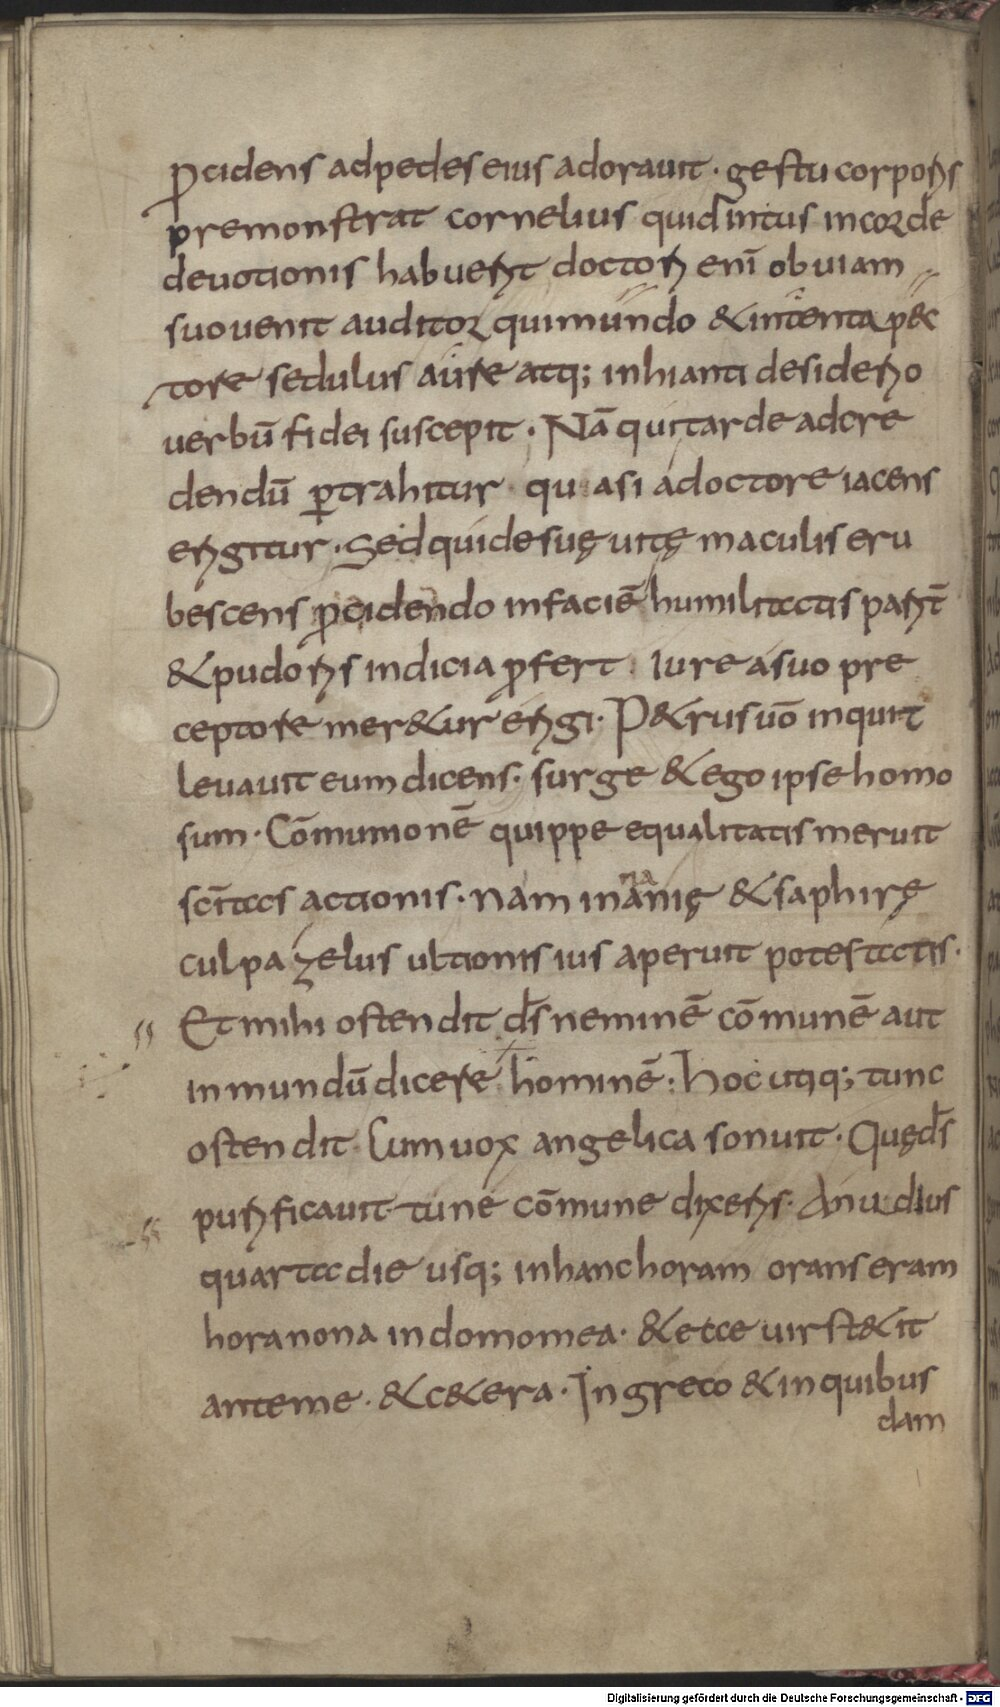 p̄cidens adpedes eius adorauit · gestu corporis
premonstrat cornelius quid intus incorde
deuotionis habuerit doctori eni̅ obuiam
suo uenit auditor quimundo & intenta p&
tore sedulus aure atq; inhianti desiderio
uerbu̅ fidei suscepit · Na̅ qui tarde adcre
dendu̅ ꝑtrahitur quasi adoctore iacens
erigitur · Sed quidesuę uitę maculis eru
bescens p̄cidendo infacie̅ humilitatis parit̅
& pudoris indicia p̄fert · Iure asuo pre
ceptore mer&ur erigi · P&rus uo̅ inquit
leuauit eum dicens · surge & ego ipse homo
sum · Co̅munione̅ quippe equalitatis meruit
sc̅itas actionis · nam inananię & saphirę
culpa zelus ultionis ius aperuit potestatis ·
Et mihi ostendit ds̅ nemine̅ co̅mune̅ aut
inmundu̅ dicere homine̅ : hoc utiq; tunc
ostendit · Cum uox angelica sonuit · Quę ds̅
purificauit tu ne co̅mune dixeris · Anudius
quarta die usq; inhanc horam orans eram
hora nona in domo mea · & ecce uir st&it
ante me · & c&era · In greco & inquibus
dam
Digitalisierung gefördert durch die Deutsche Forschungsgemeinschaft - DFG